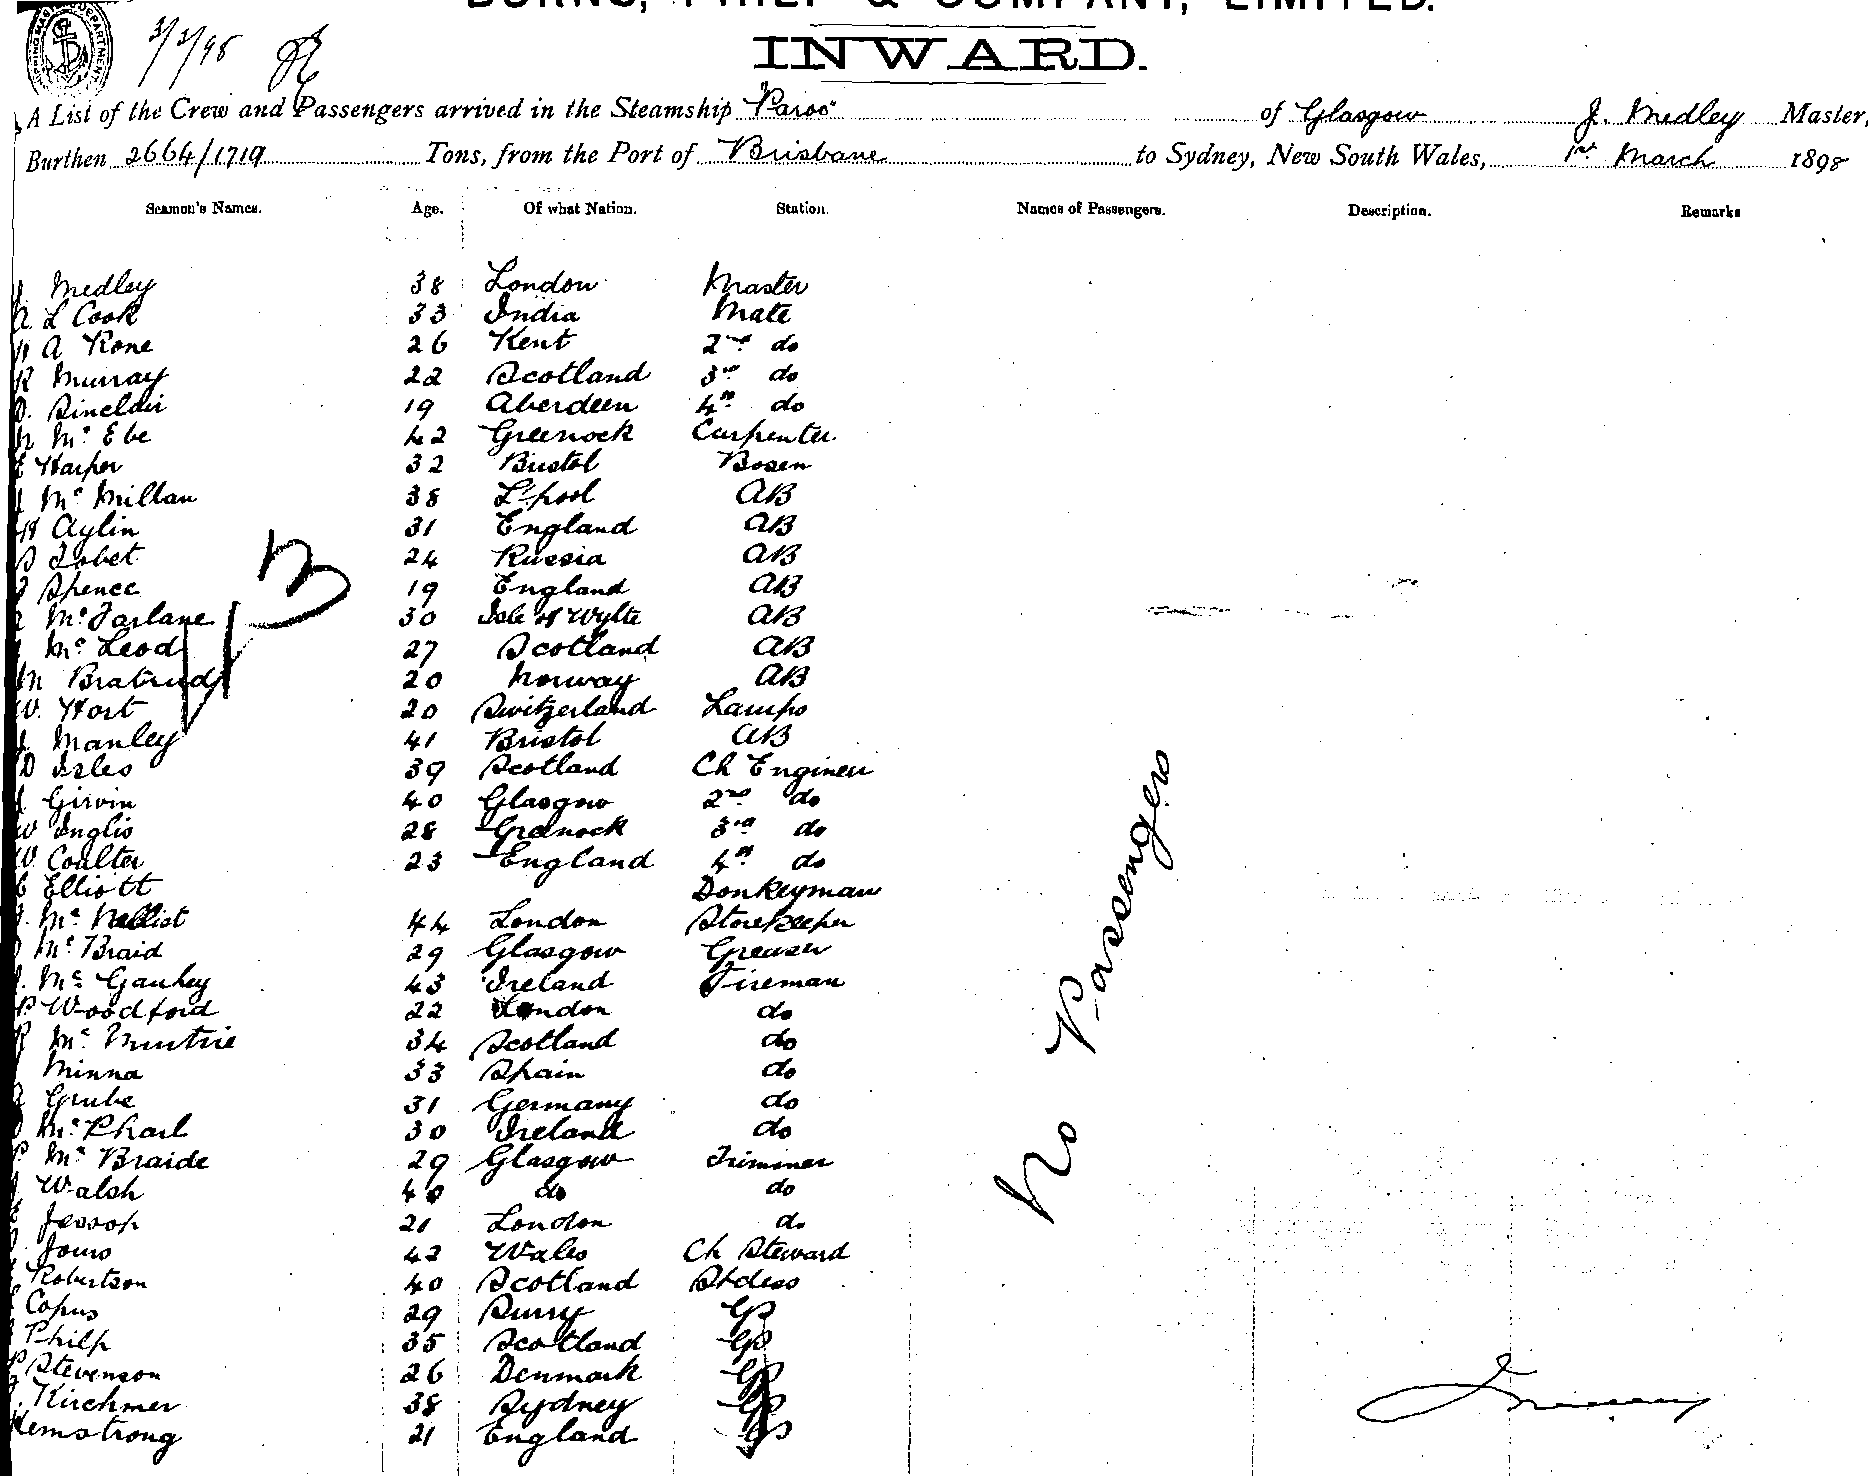 BURNS, PHILP & COMPANY, LIMITED.
INWARD.
A List of the Crew and Passengers arrived in the Steamship "Paroo" of Glasgow J. Medley Master,
Burthen 2664/1719 Tons, from the Port of Brisbane to Sydney, New South Wales, 1st March 1898
Seamen's Names. Age. Of what Nation. Station. Names of Passengers. Description. Remarks
J Medley 38 London Master
A L Cook 33 India Mate
A Kone 26 Kent 2nd do
R Murray 22 Scotland 3rd do
D. Sinclair 19 Aberdeen 4th do
Mc Ebe 42 Greenock Carpenter
E Harper 32 Bristol Bosen
J Mc Millan 38 L'pool AB
H Aylin 31 England AB
Tobet 24 Russia AB
Spence 19 England AB
Mc Farlane 30 Isle of Wylte AB
Mc Leod 27 Scotland AB
M Bratrud 20 Norway AB
W. Hort 20 Switzerland Lamps
J. Manley 41 Bristol AB
D Isles 39 Scotland Ch Engineer
J Girvin 40 Glasgow 2nd do
W Inglis 28 Greenock 3rd do
W. Coulter 23 England 4th do
C Elliott Donkeyman
J. Mc Nellist 44 London Storekeeper
Mc Braid 29 Glasgow Greaser
J. Mc Gauhey 43 Ireland Fireman
P Woodford 22 London do
R Mc Murtrie 34 Scotland do
Minna 33 Spain do
Grube 31 Germany do
Mc Phail 30 Ireland do
P Mc Braide 29 Glasgow Trimmer
Walsh 40 do do
Jessop 21 London do
Jones 42 Wales Ch Steward
Robertson 40 Scotland Stdess
Copus 29 Surry GS
Philp 35 Scotland GS
P Stevenson 26 Denmark GS
Kirchmer 38 Sydney GS
Hemstrong 21 England GS
No Passengers